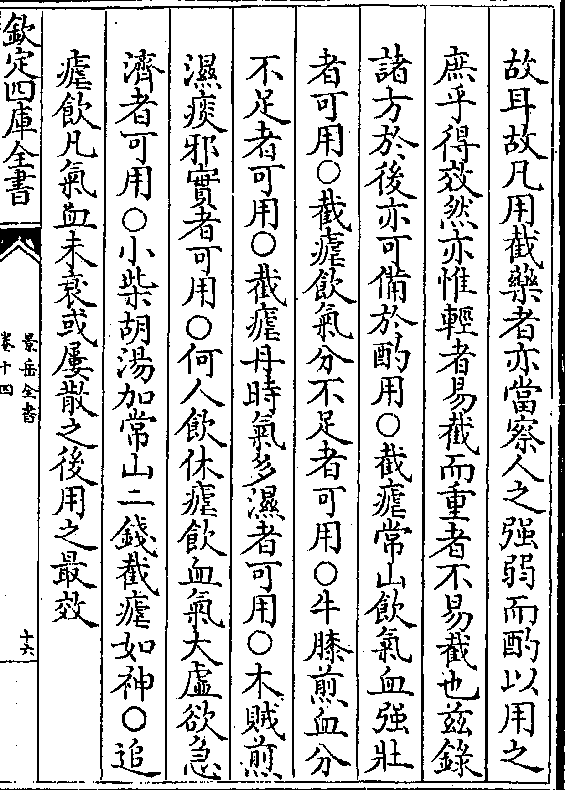 故耳故凡用截藥者亦當察人之强弱而酌以用之
庶乎得效然亦惟輕者易截而重者不易截也兹錄
諸方於後亦可備於酌用○截瘧常山飲氣血强壯
者可用○截瘧飲氣分不足者可用○牛膝煎血分
不足者可用○截瘧丹時氣多濕者可用○木賊煎
濕痰邪實者可用○何人飲休瘧飲血氣大虛欲急
濟者可用○小柴胡湯加常山二錢截瘧如神○追
瘧飲凡氣血未衰或屢散之後用之最效
欽定四庫全書
景岳全書
卷十四
十六